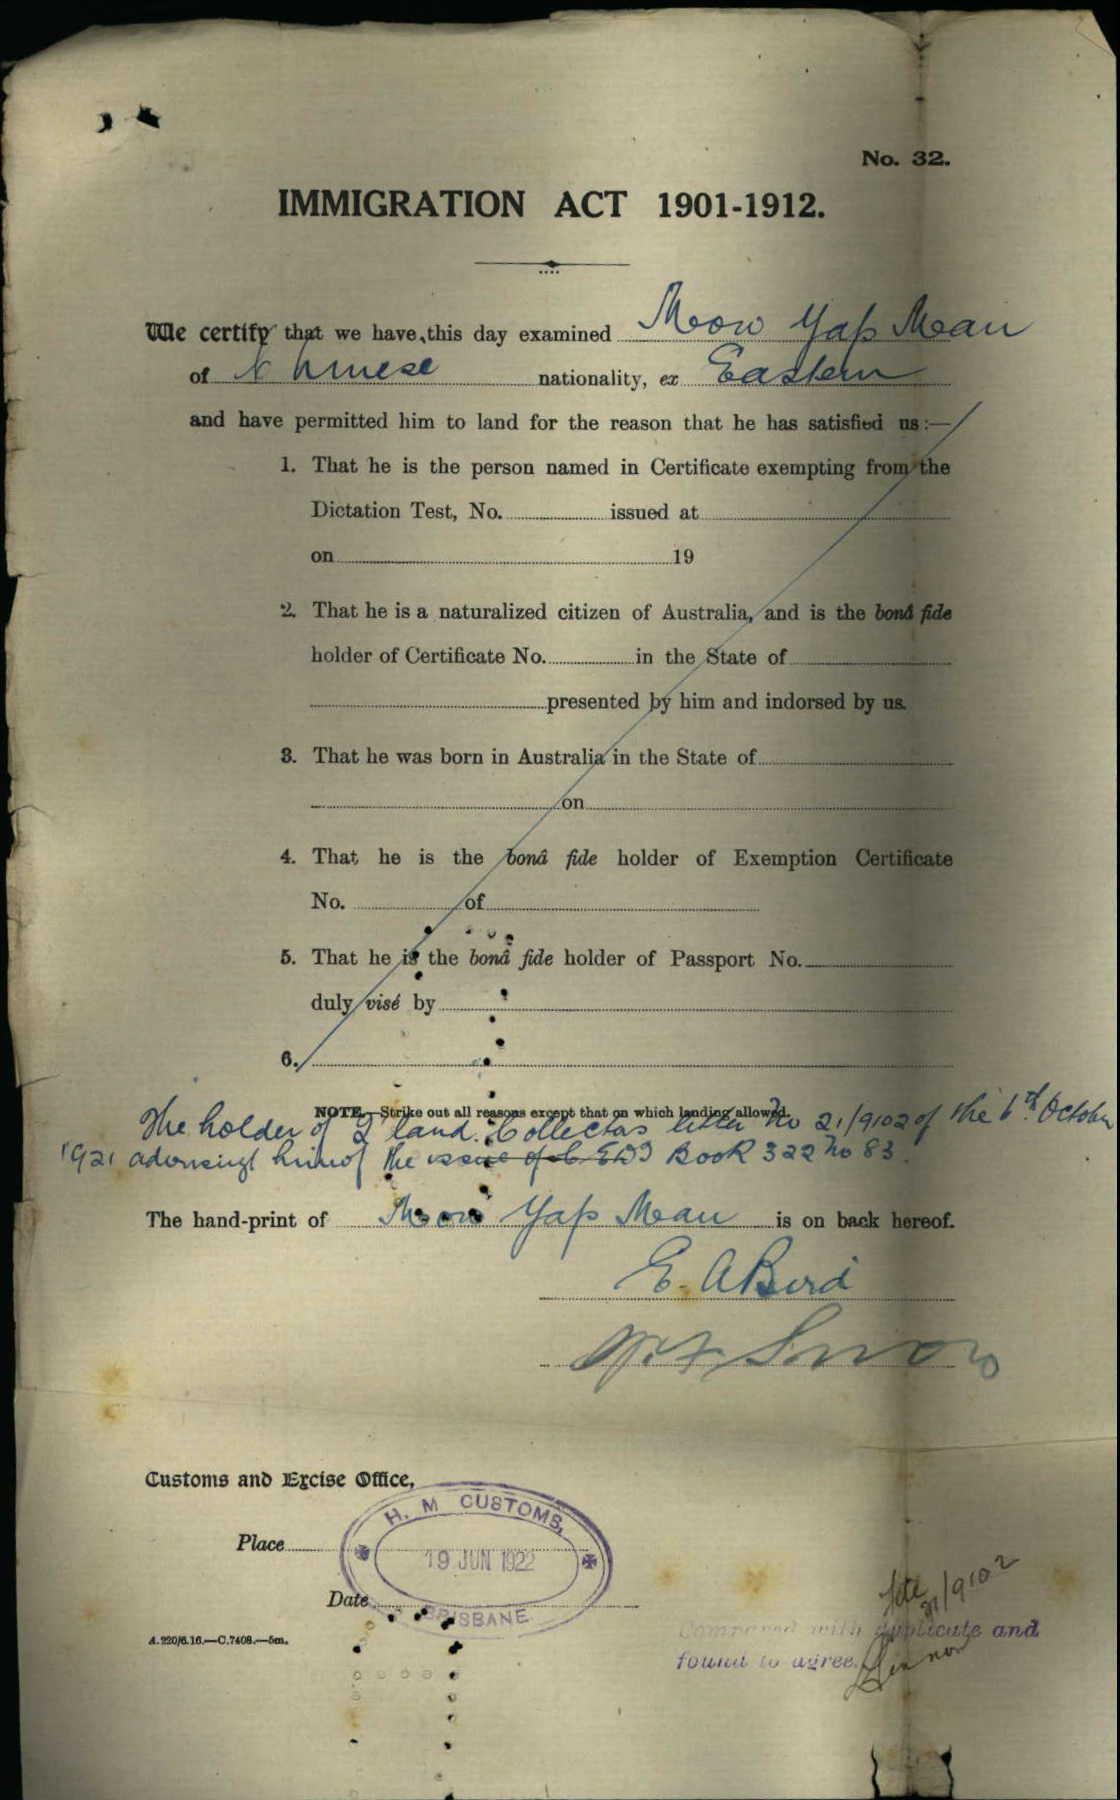 No. 32.
IMMIGRATION ACT 1901-1912.
We certify that we have this day examined Meow Yap Mean
of Chinese nationality, ex Eastern
and have permitted him to land for the reason that he has satisfied us:—
1. That he is the person named in Certificate exempting from the
Dictation Test, No. issued at
on 19
2. That he is a naturalized citizen of Australia, and is the bonâ fide
holder of Certificate No. in the State of
presented by him and indorsed by us.
3. That he was born in Australia in the State of
on
4. That he is the bonâ fide holder of Exemption Certificate
No. of
5. That he is the bonâ fide holder of Passport No.
duly visé by
6.
NOTE.—Strike out all reasons except that on which landing allowed.
The holder of Q'land. Collectors letter No 21/9102 of the 6th October
1921 advising him of the issue of C EDT Book 322 No 83.
The hand-print of Meow Yap Mean is on back hereof.
E. A Bird
Customs and Excise Office,
H. M CUSTOMS,
Place
19 JUN 1922
Date
BRISBANE
21/9102
A.220/6.16.—C.7408.—5m.
Compared with duplicate and
found to agree.